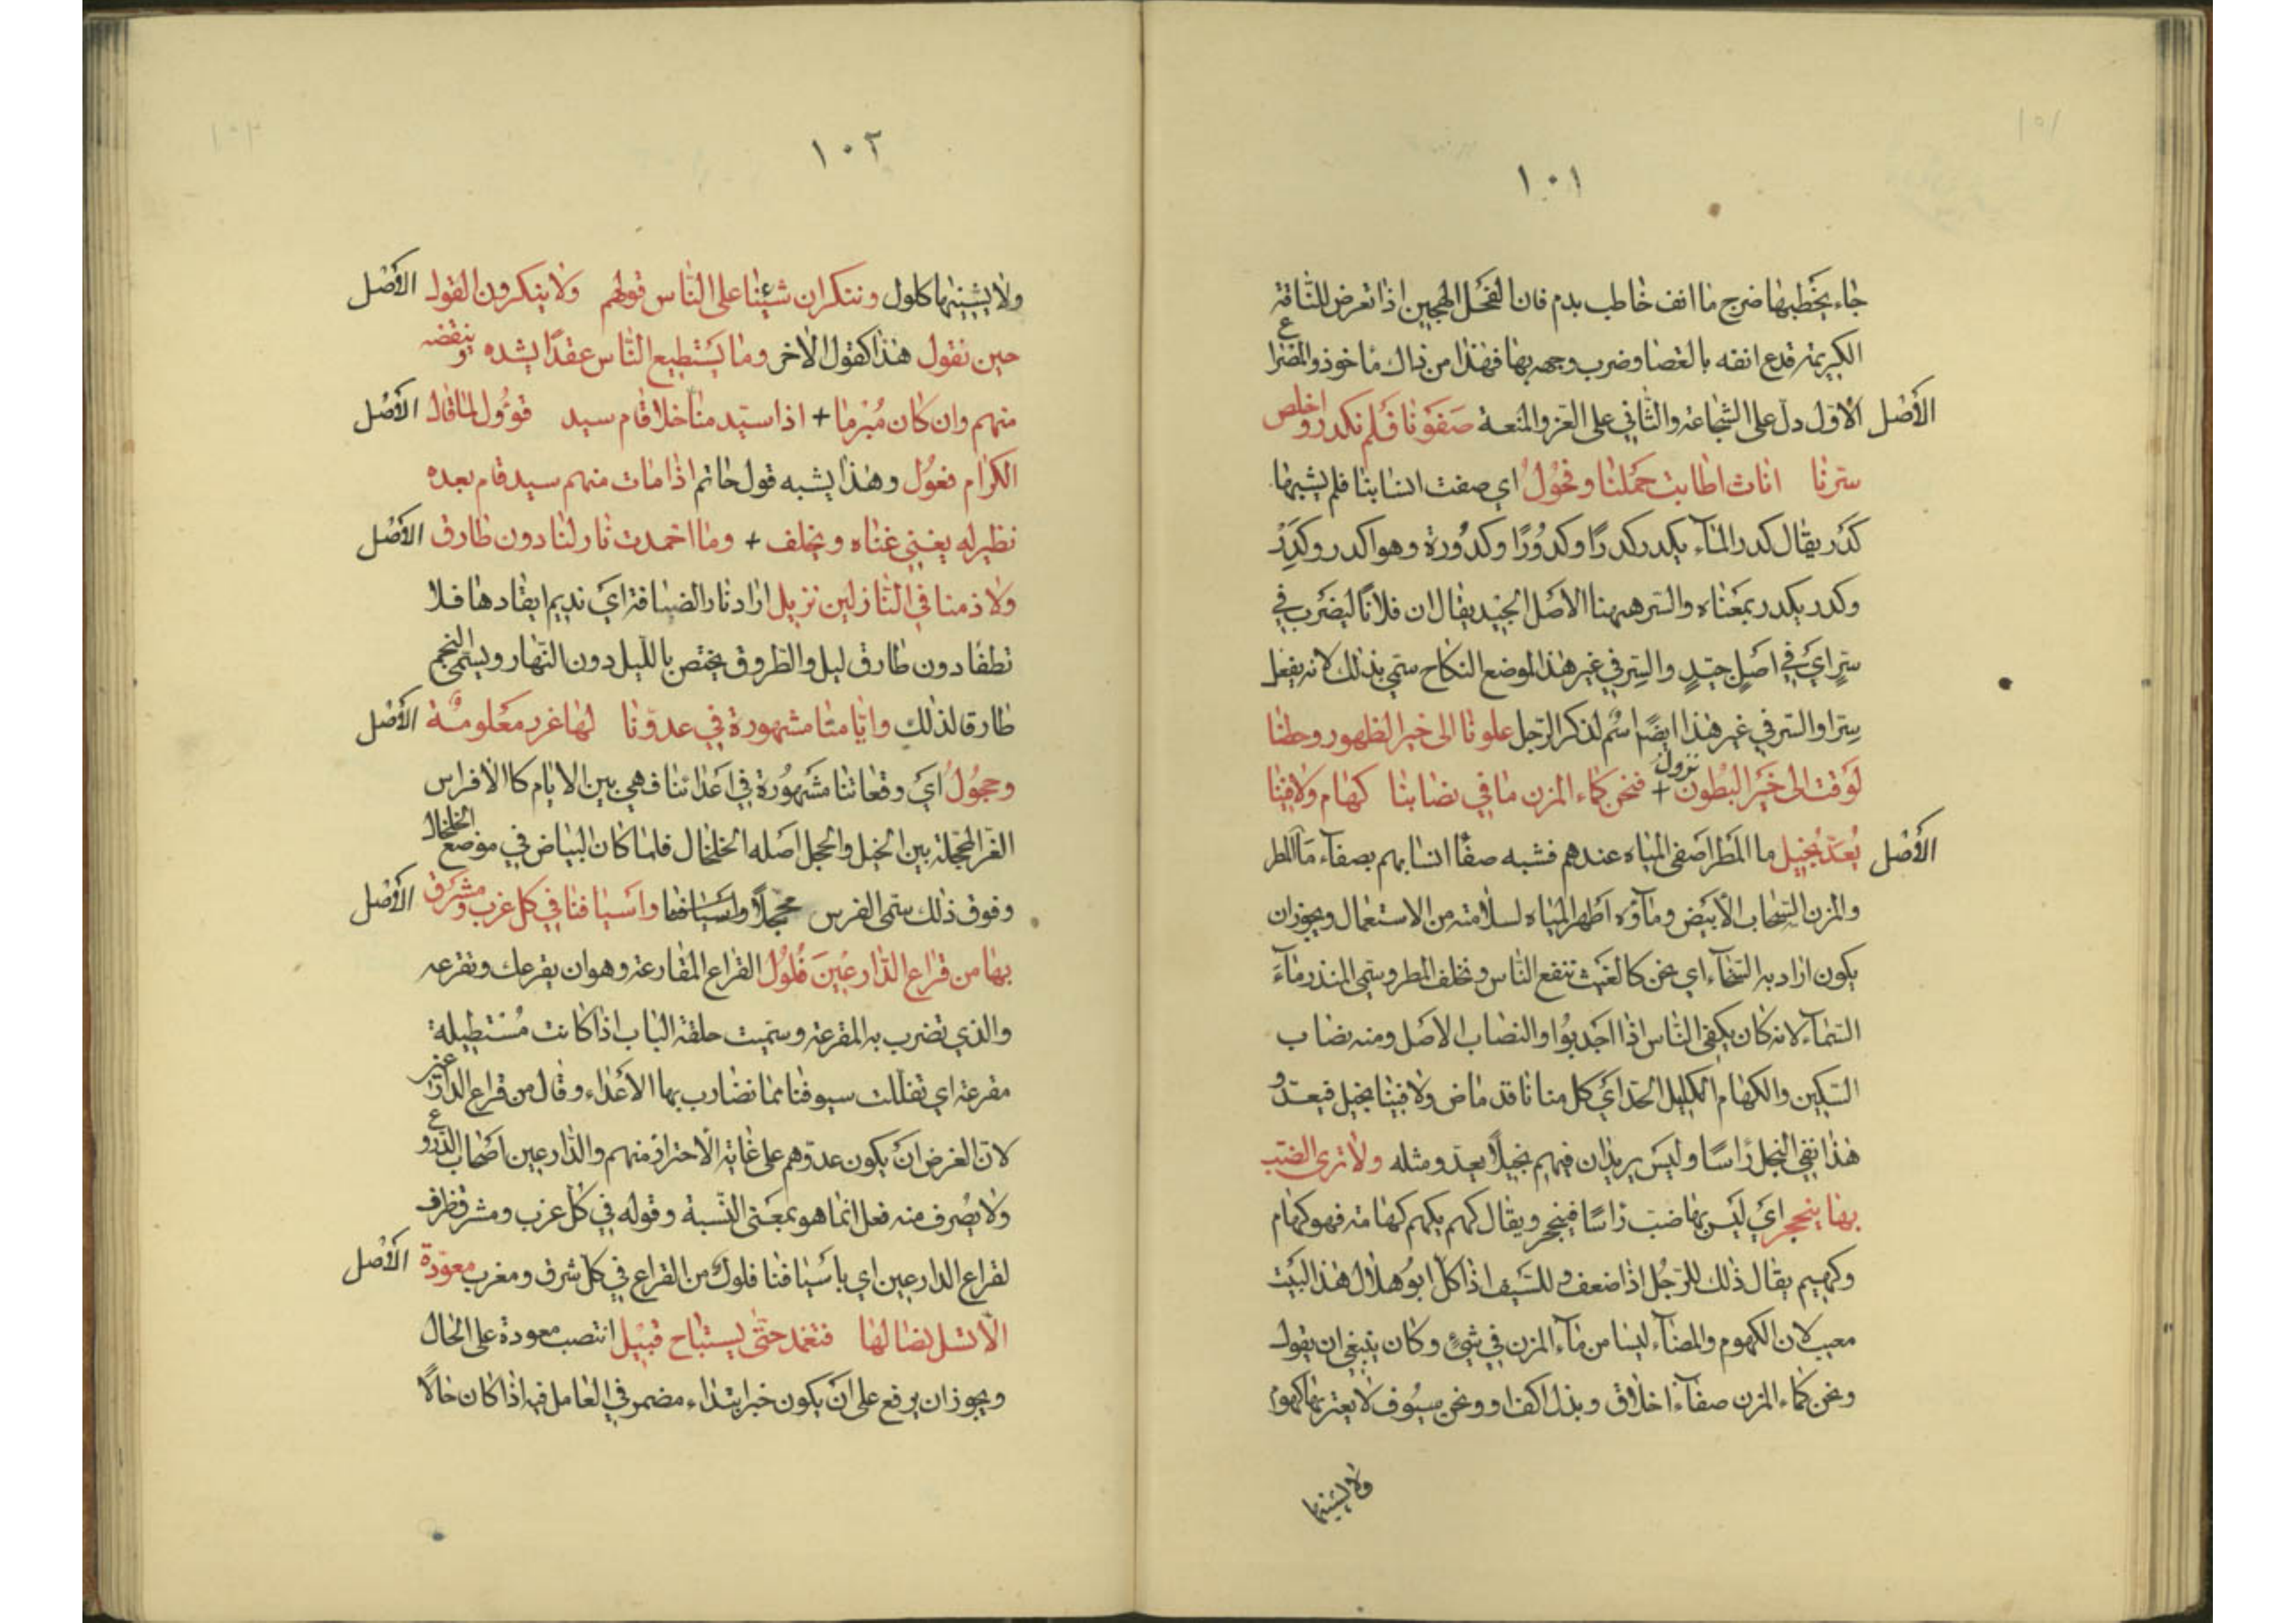 ١٠١
جاء يخطبها ضرج ما انف خاطب بدم فان الفحل الهجين اذا تعرض للناقة
الكريمة قدع انفه بالعصا وضرب وجهه بها فهذا من ذاك ماخوذ والمضراع
الأصل الاول دل على الشجاعة والثاني على العز والمنعة صفونا فلم نكدر واخلص
سرنا اناث اطابت حملنا وفحول اي صفت انسابنا فلم يشبها
كدر يقال كدر المآء يكدر كدرًا وكدورًا وكدورة وهو اكدر وكدِرْ
وكدر يكدر بمعناه والسر ههنا الاصل الجيد يقال ان فلانًا ليضرب في
سرٍ اي في اصلٍ جيدٍ والسر في غير هذا الموضع النكاح سمي بذلك لانه يفعل
سرا والسر في غير هذا ايضًا اسم لذكر الرجل علونا الى خير الظهور وحطنا
لوقت الى خير البطون نزول + فنحن كماء المزن ما في نصابنا كهام ولا فينا
الأصل يعدّ بخيل ما المطر اصفى المياه عندهم فشبه صفا انسابهم بصفاء مآ المطر
والمزن السحاب الأبيض ومآؤه اطهر المياه لسلامته من الاستعمال ويجوز ان
يكون اراد به السخآء اي نحن كالغيث ننفع الناس ونخلف المطر وسمي المنذر مآء
السمآء لانه كان يكفي الناس اذا اجدبوا والنصاب الاصل ومنه نصاب
السكين والكهام الكليل الحد اي كل منا نافد ماض ولا فينا بخيل فيعد و
هذا نفي البخل رًاسًا وليس يريد ان فيهم بخيلًا يعد ومثله ولا ترى الضب
بها ينجحر اي ليس بها ضب راسًا فينجحر ويقال كهم يكهم كهامة فهو كهام
وكهيم يقال ذلك للرجل اذا ضعف وللسيف اذا كلّ ابو هلال هذا البيت
معيب لان الكهوم والمضآء ليسا من مآء المزن في شيءٍ وكان ينبغي ان يقول
ونحن كماء المزن صفآء اخلاق وبذل اكف او ونحن سيوف لا يعتريها كهوم
ولا يشينها
١٠٢
ولا يشينها كلول وننكر ان شيئنا على الناس قولهم ولا ينكرون القول الأصل
حين نقول هذا كقول الآخر وما يستطيع الناس عقدًا يشده و ينقضه
منهم وان كان مُبْرما + اذا سيد منا خلا قام سيد قوؤل لما قال الأصل
الكرام فعول وهذا يشبه قول حاتم اذا مات منهم سيد قام بعده
نظير له يغني غناه ويخلف + وما اخمدت نار لنا دون طارق الأصل
ولا ذمنا في النازلين نزيل اراد نار الضيافة اي نديم ايقادها فلا
تطفا دون طارق ليل والطروق يختص بالليل دون النهار ويسمى النجم
طارقا لذلك وايامنا مشهورة في عدونا لها غرر معلومة الأصل
وحجول اي وقعاتنا مشهورة في اعدائنا فهي بين الايام كالافراس
الغر المحجلة بين الخيل والحجل اصله الخلخال فلما كان البياض في موضع الخلخال
وفوق ذلك سمى الفرس محجلًا واسيافنا واسيافنا في كل غرب ومشرق الأصل
بها من قراع الدارعين فلول القراع المقارعة وهو ان يقرعك وتقرعه
والذي تضرب به المقرعة وسميت حلقة الباب اذا كانت مستطيلة
مقرعة اي تفللت سيوفنا مما نضارب بها الأعداء وقال من قراع الدارعين
لان الغرض ان يكون عدوهم على غاية الاحتراز منهم والدارعين اصحاب الدروع
ولا يصرف منه فعل انما هو بمعنى النسبة وقوله في كل غرب ومشرق ظرف
لقراع الدارعين اي باسيافنا فلول من القراع في كل شرق ومغرب معودة الأصل
الّا تسل نصالها فتغمد حتى يستباح قبيل انتصب معودة على الحال
ويجوز ان يرفع على ان يكون خبر ابتداء مضمر في العامل فيه اذا كان حالًا